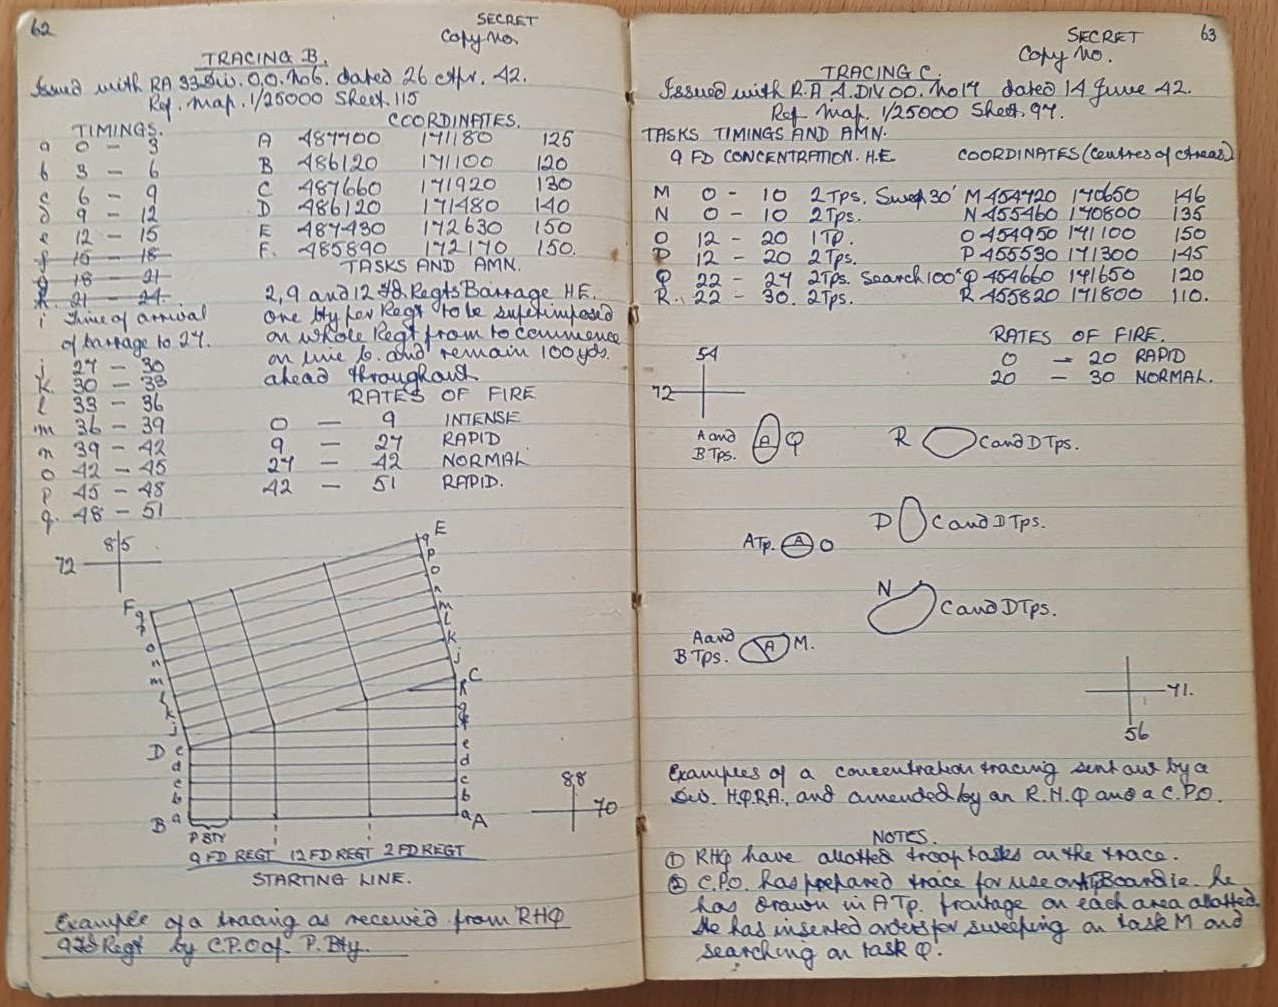 62
SECRET
Copy No.
TRACING B.
Issued with RA 33 Div. O.O. No 6. dated 26 Apr. 42.
Ref. Map. 1/25000 Sheet 115
TIMINGS. COORDINATES.
a 0 - 3 A 487700 171180 125
b 3 - 6 B 486120 171100 120
c 6 - 9 C 487660 171920 130
d 9 - 12 D 486120 171480 140
e 12 - 15 E 487430 172630 150
f 15 - 18 F. 485890 172170 150.
g 18 - 21 TASKS AND AMN.
h. 21 - 24 2, 9 and 12 Fd Regts Barrage H.E.
i Time of arrival One bty per Regt to be superimposed
of barrage to 27. on whole Regt front to commence
on line b. and remain 100 yds.
j 27 - 30 ahead throughout
k. 30 - 33 RATES OF FIRE
l 33 - 36
m 36 - 39 0 — 9 INTENSE
n 39 - 42 9 — 27 RAPID
o 42 - 45 27 — 42 NORMAL
p 45 - 48 42 — 51 RAPID.
q. 48 - 51
85
72
E
q
p
o
n
m
l
k
j
C
h
g
f
e
d
c
b
a A
F q
p
o
n
m
l
k
j
D e
d
c
b
B a
88
70
P BTY
9 FD REGT 12 FD REGT 2 FD REGT
STARTING LINE.
Example of a tracing as received from RHQ
9 Fd Regt by C.P.O of P. Bty.
63
SECRET
Copy No.
TRACING C.
Issued with R.A 1. DIV OO. No 17 dated 14 June 42.
Ref Map. 1/25000 Sheet, 97.
TASKS TIMINGS AND AMN.
9 FD CONCENTRATION. H.E. COORDINATES (Centres of Areas)
M 0 - 10 2 Tps. Sweep 30' M 454720 170650 146
N 0 - 10 2 Tps. N 455460 170800 135
O 12 - 20 1 TP. O 454950 171100 150
P 12 - 20 2 Tps. P 455530 171300 145
Q 22 - 27 2 Tps. Search 100x Q 454660 171650 120
R.. 22 - 30. 2 Tps. R 455820 171800 110.
RATES OF FIRE.
0 — 20 RAPID
20 — 30 NORMAL.
54
72
A and B Tps. A Q
R C and D Tps.
D C and D Tps.
A Tp. A O
N C and D Tps.
A and B Tps. A M.
71.
56
Examples of a concentration tracing sent out by a
Div. H.Q.R.A., and amended by an R.H.Q and a C.P.O.
NOTES.
① RHQ have allotted troop tasks on the trace.
② C.P.O. has prepared trace for use on A Tp Board ie. he
has drawn in A Tp. frontage on each area allotted.
He has inserted orders for sweeping on task M and
searching on task Q.